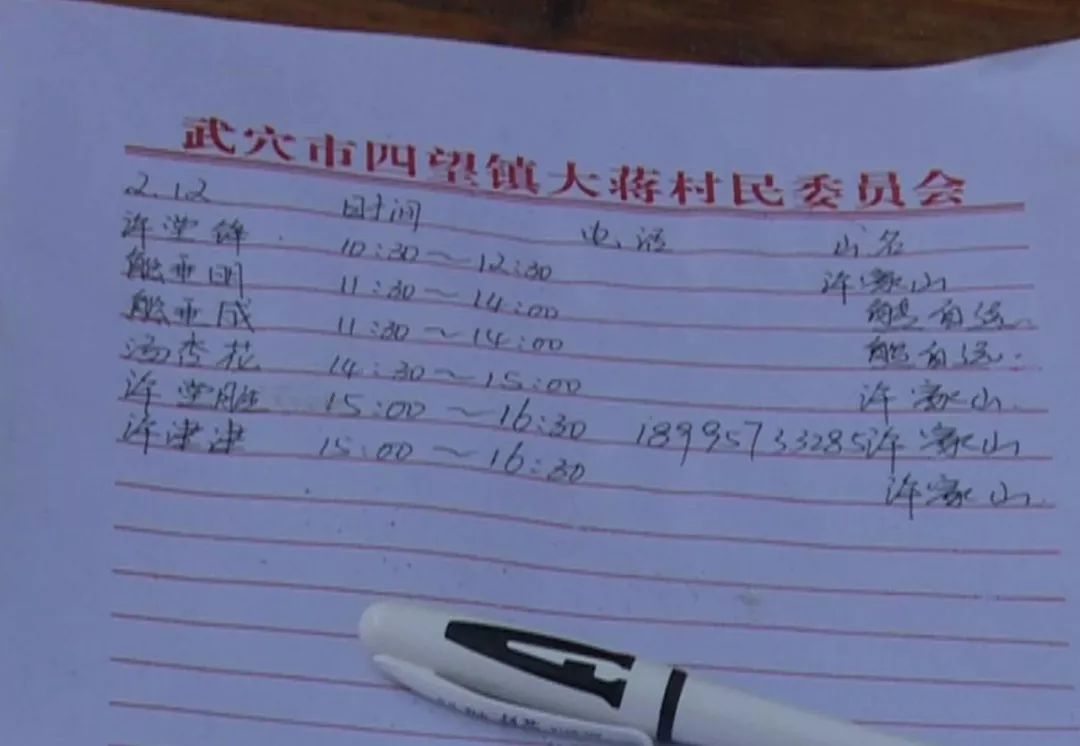 武穴市四望镇大蒋村民委员会
2.12 时间 电话 山名
许堂锋 10:30~12:30 许家山
熊亚明 11:30~14:00 熊自强
熊亚成 11:30~14:00 熊自强
汤杏花 14:30~15:00 许家山
许堂胜 15:00~16:30 18995733285 许家山
许津津 15:00~16:30 许家山